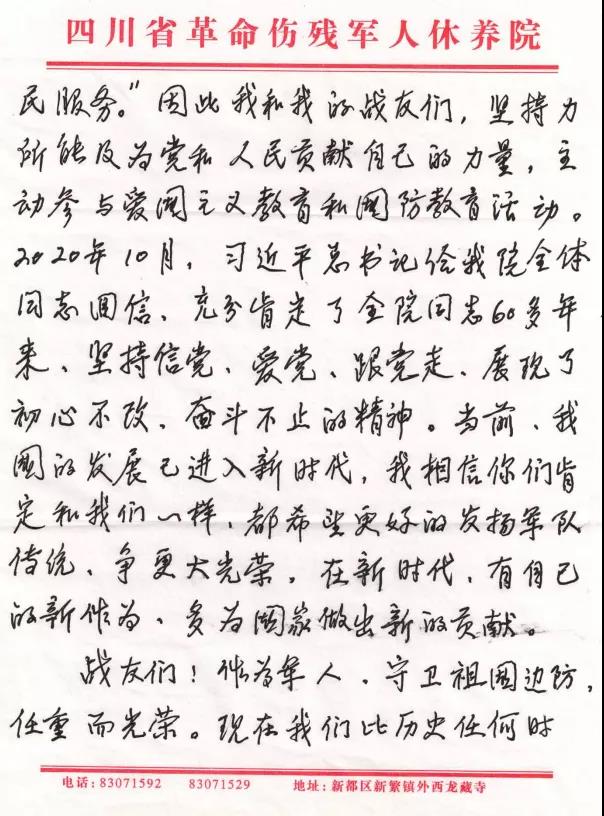 四川省革命伤残军人休养院
民服务。"因此我和我的战友们，坚持力
所能及为党和人民贡献自己的力量，主
动参与爱国主义教育和国防教育活动。
2020年10月，习近平总书记给我院全体
同志回信、充分肯定了全院同志60多年
来、坚持信党、爱党、跟党走、展现了
初心不改、奋斗不止的精神。当前、我
国的发展已进入新时代，我相信你们肯
定和我们一样，都希望更好的发扬军队
传统、争更大光荣，在新时代、有自己
的新作为、多为国家做出新的贡献。
战友们！作为军人、守卫祖国边防，
任重而光荣。现在我们比历史任何时
电话：83071592 83071529 地址：新都区新繁镇外西龙藏寺